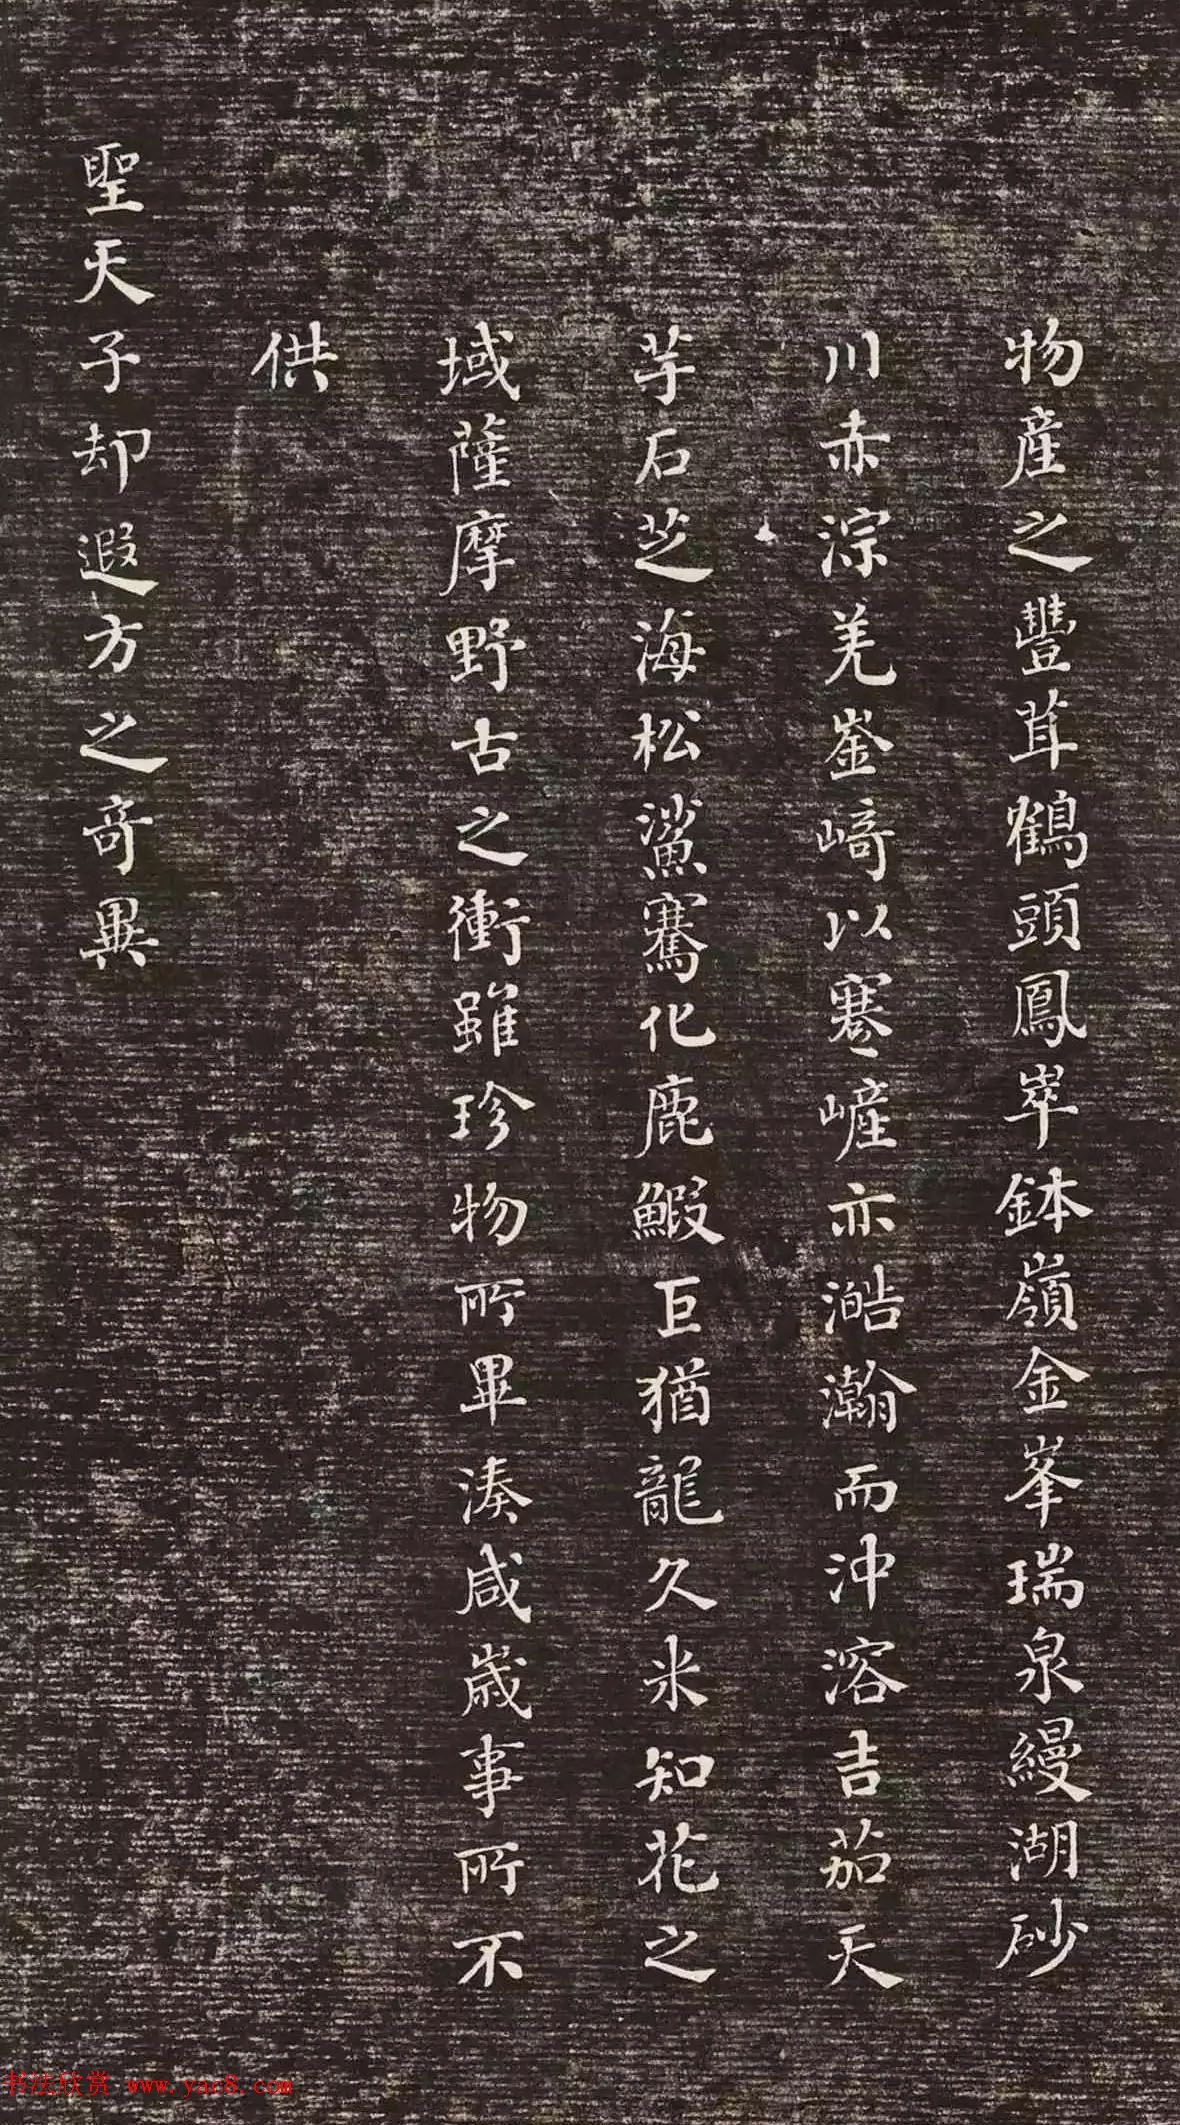 物產之豐茸鶴頭鳳崒鉢嶺金峯瑞泉縵湖砂
川赤淙羌崟崎以蹇嵼亦澔瀚而沖溶吉茄天
芋石芝海松鯊騫化鹿鰕巨猶龍久米知花之
域薩摩野古之衝雖珍物所畢湊咸歲事所不
供
聖天子却遐方之奇異
书法欣赏 www.yac8.com